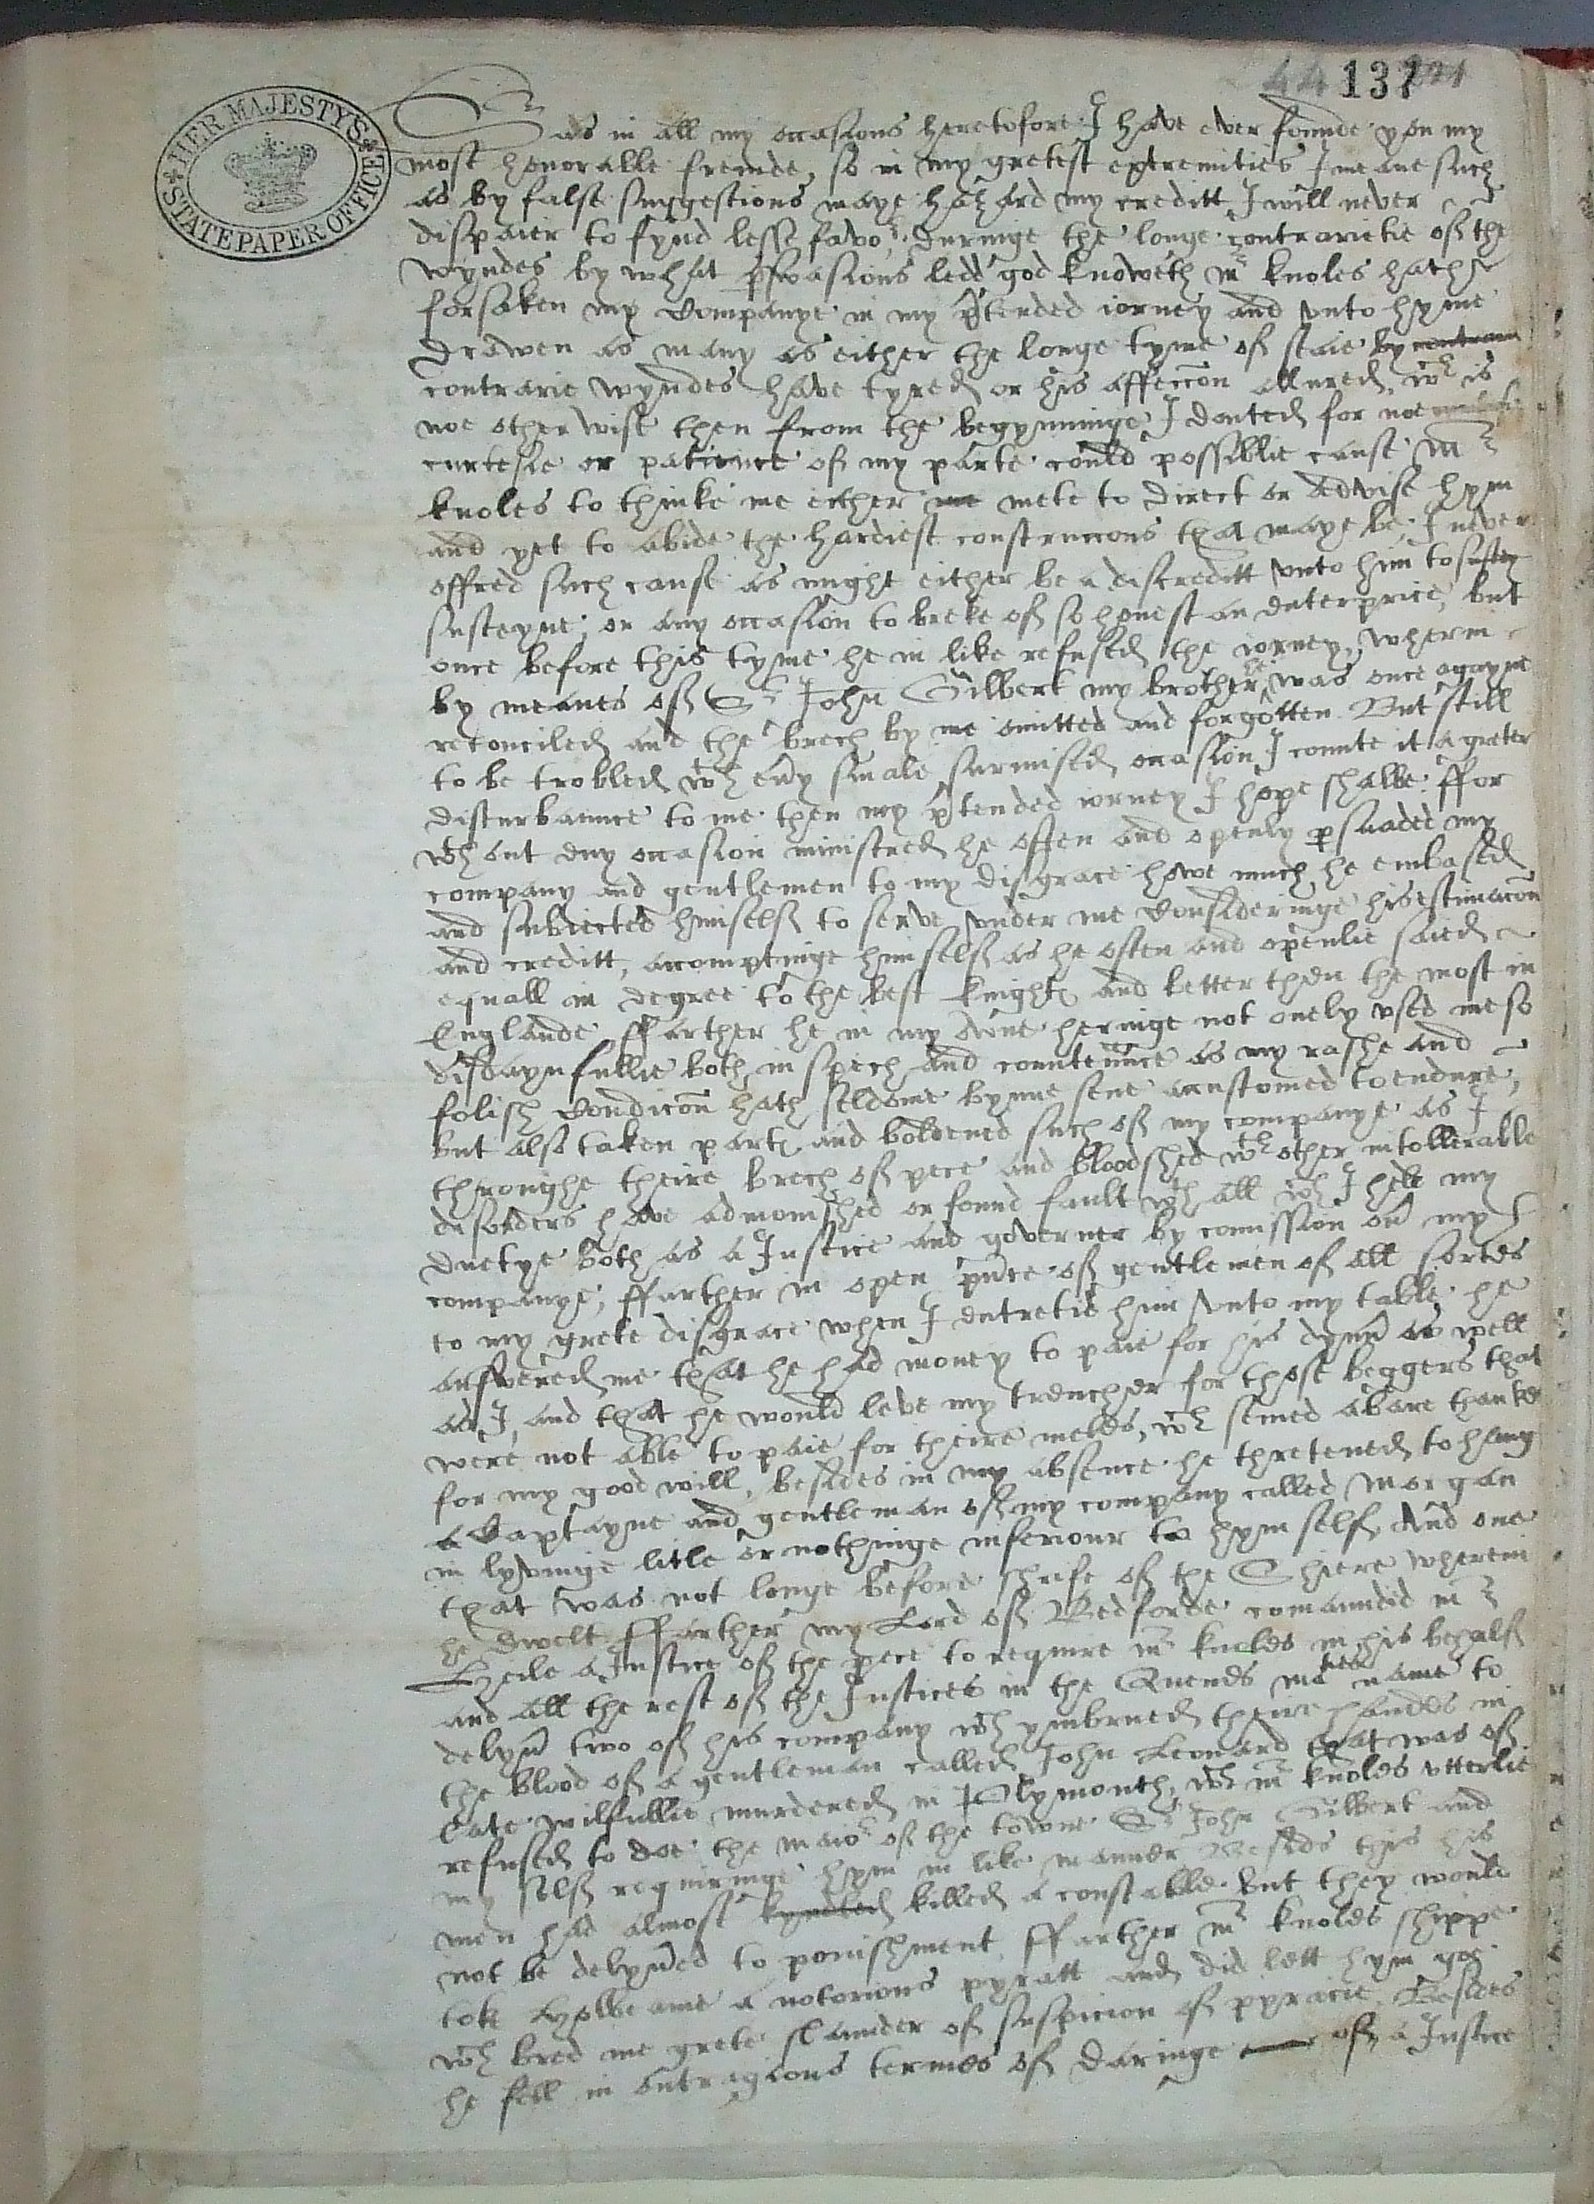 HER MAJESTY'S STATE PAPER OFFICE
137
Sr as in all my occasions heretofore I have ever founde you my
most honorable freinde, so in my gretest extremities I meane such
as by false suggestions maye hazard my creditt I will never
dispaier to fynd lesse favor. Duringe the longe contrarietie of the
wyndes by what pswasions ledd god knoweth mr knoles hath
forsaken my Companye in my ptended iorney and unto hyme
drawen as many as either the longe tyme of staie by
contrarie wyndes have tyred or his affeccon allured, wch is
noe otherwise then from the begynninge I douted for noe
curtesie or patience of my parte could possiblie cause Mr
knoles to thinke me either me mete to direct or advise hym
and yet to abide the hardiest construccons that maye be I never
offred such cause as might either be a discreditt unto him to susten
susteyne, or any occasion to breke of so honest an enterprice, but
once before this tyme he in like refused the iorney, wherin
by meanes of Sr John Gilbert my brother he was once agayne
reconciled and the brech by me omitted and forgotten. But still
to be trobled wth eny smale surmised occasion I counte it a greter
disturbaunce to me then my ptended iorney I hope shalbe. ffor
wthout eny occasion ministred he often and openly psuaded my
company and gentlemen to my disgrace howe much he embased
and subiected himself to serve under me Consideringe his estimacon
and creditt, accomptinge himself as he often and openlie saied
equall in degree to the best knightes and better then the most in
Englande, ffarther he in my owne heringe not onely used me so
disdaynfullie both in spech and countenunce as my rashe and
folish Condicon hath seldome byn sene accustomed to endure,
but also taken parte and boldened such of my companye as I
throughe theire brech of pece and bloodshed wth other intollerable
disorders have admonished or found fault wth all wch I held my
duetye both as a Justice and governer by comission over my
companye, ffarther in open pnce of gentlemen of all sortes
to my grete disgrace when I entretid him unto my table he
answered me that he had money to paie for his dynner as well
as I, and that he would leve my trencher for those beggers that
were not able to paie for theire meles, wch semed a bare thankes
for my good will, besides in my absence he thretened to hang
a Captayne and gentleman of my company called Morgan
in lyvinge litle or nothinge inferiour to hym self, And one
that was not longe before shrife of the Shiere wherein
he dwelt ffarther my Lord of Bedforde comaundid mr
Hele a Justice of the pece to require mr knoles in his behalf
and all the rest of the Justices in the Quenes maties name to
delyver two of his company wch ymbrued theire handes in
the blood of a gentleman called John Leonard that was of
late wilfullie murdered in Plymouth, wch mr knoles utterlie
refused to doe the maior of the towne Sr John Gilbert and
my self requiringe hym in like manner Besids this his
men had almost killed a constable but they would
not be delyvered to ponishment, ffarther mr knoles shippe
tok Holbeame a notorious pyratt and did lett hym goe
wch bred me grete slaunder of suspicion of pyracie. Besides
he fell in outragious termes of daringe of a Justice